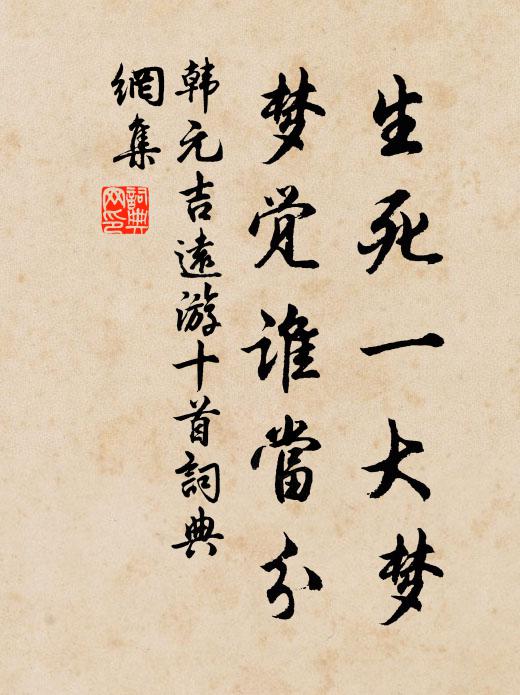 生死一大梦
梦觉谁當分
韩元吉遠游十首詞典
網集
詞典網印